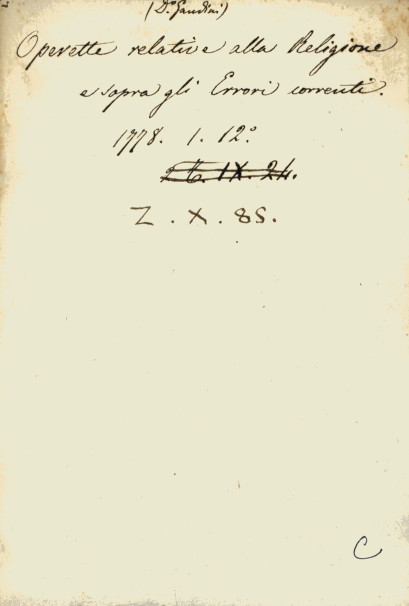 (D.º Gaudini)
Operette relative alla Religione
e sopra gli Errori correnti.
1778. 1. 12.º
IX. 24.
Z. X. 85.
C